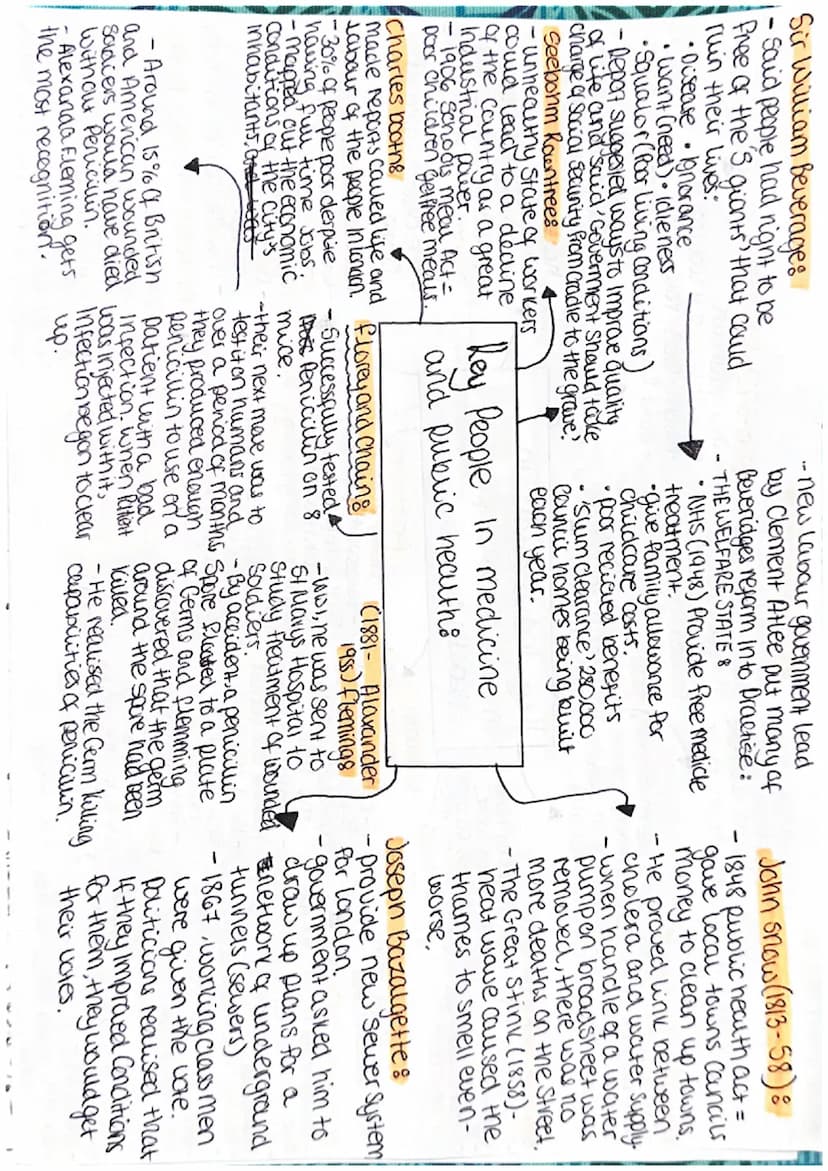 Sir William Beverage:
- Said people had right to be
free of the '5 giants' that could
ruin their lives:
• Disease • Ignorance
• Want (need) • Idleness
• Squalor (Poor living conditions)
- Report suggested ways to improve quality
of life and said 'Goverment should take
charge of social security from cradle to the grave.'
- new labour government lead
by Clement Atlee put many of
Beveridges reform into practise:
- THE WELFARE STATE:
• NHS (1948) Provide free medicle
treatment.
• give family allowance for
childcare costs.
• poor recieved benefits
• 'Slum clearance' 280,000
council homes being built
each year.
John Snow (1813-58):
- 1848 public health act =
gave local towns councils
money to clean up towns.
- He proved link between
cholera and water supply
- when handle of a water
pump on broadsheet was
removed, there was no
more deaths on the street.
- The Great Stink (1858) -
heat wave caused the
thames to smell even -
worse.
Seebohm Rowntree:
- unhealthy state of workers
could lead to a decline
of the country as a great
Industrial power.
- 1906 Schools meal Act =
poor children get free meals
Key People In medicine
and public health:
Charles booth:
made reports called life and
labour of the people in london.
- 30% of people poor despite
having full time jobs.
- mapped out the economic
conditions of the city's
inhabitants,
Florey and Chain:
- Successfully tested
Penicillin on 8
mice.
- their next move was to
test it on humans and
over a period of months
they produced enough
penicillin to use on a
patient with a bad
infection. when Patient
was injected with it,
infection began to clear
up.
- Around 15% of British
and American wounded
soldiers would have died
without Penicillin.
- Alexander Fleming gets
the most recognition.
(1881- Alaxander
1955) Fleming:
- WW1, he was sent to
St Marys Hospital to
study treatment of wounded
soldiers.
- By accident a penicillin
Spore floated to a plate
of Germs and flemming
discovered that the germ
around the spore had been
killed
- He realised the Germ killing
capabilities of penicillin.
Joseph Bazalgette:
- provide new sewer system
for london.
- government asked him to
draw up plans for a
network of underground
tunnels (sewers)
- 1867, working class men
were given the vote.
Politicians realised that
If they improved conditions
for them, they would get
their votes.